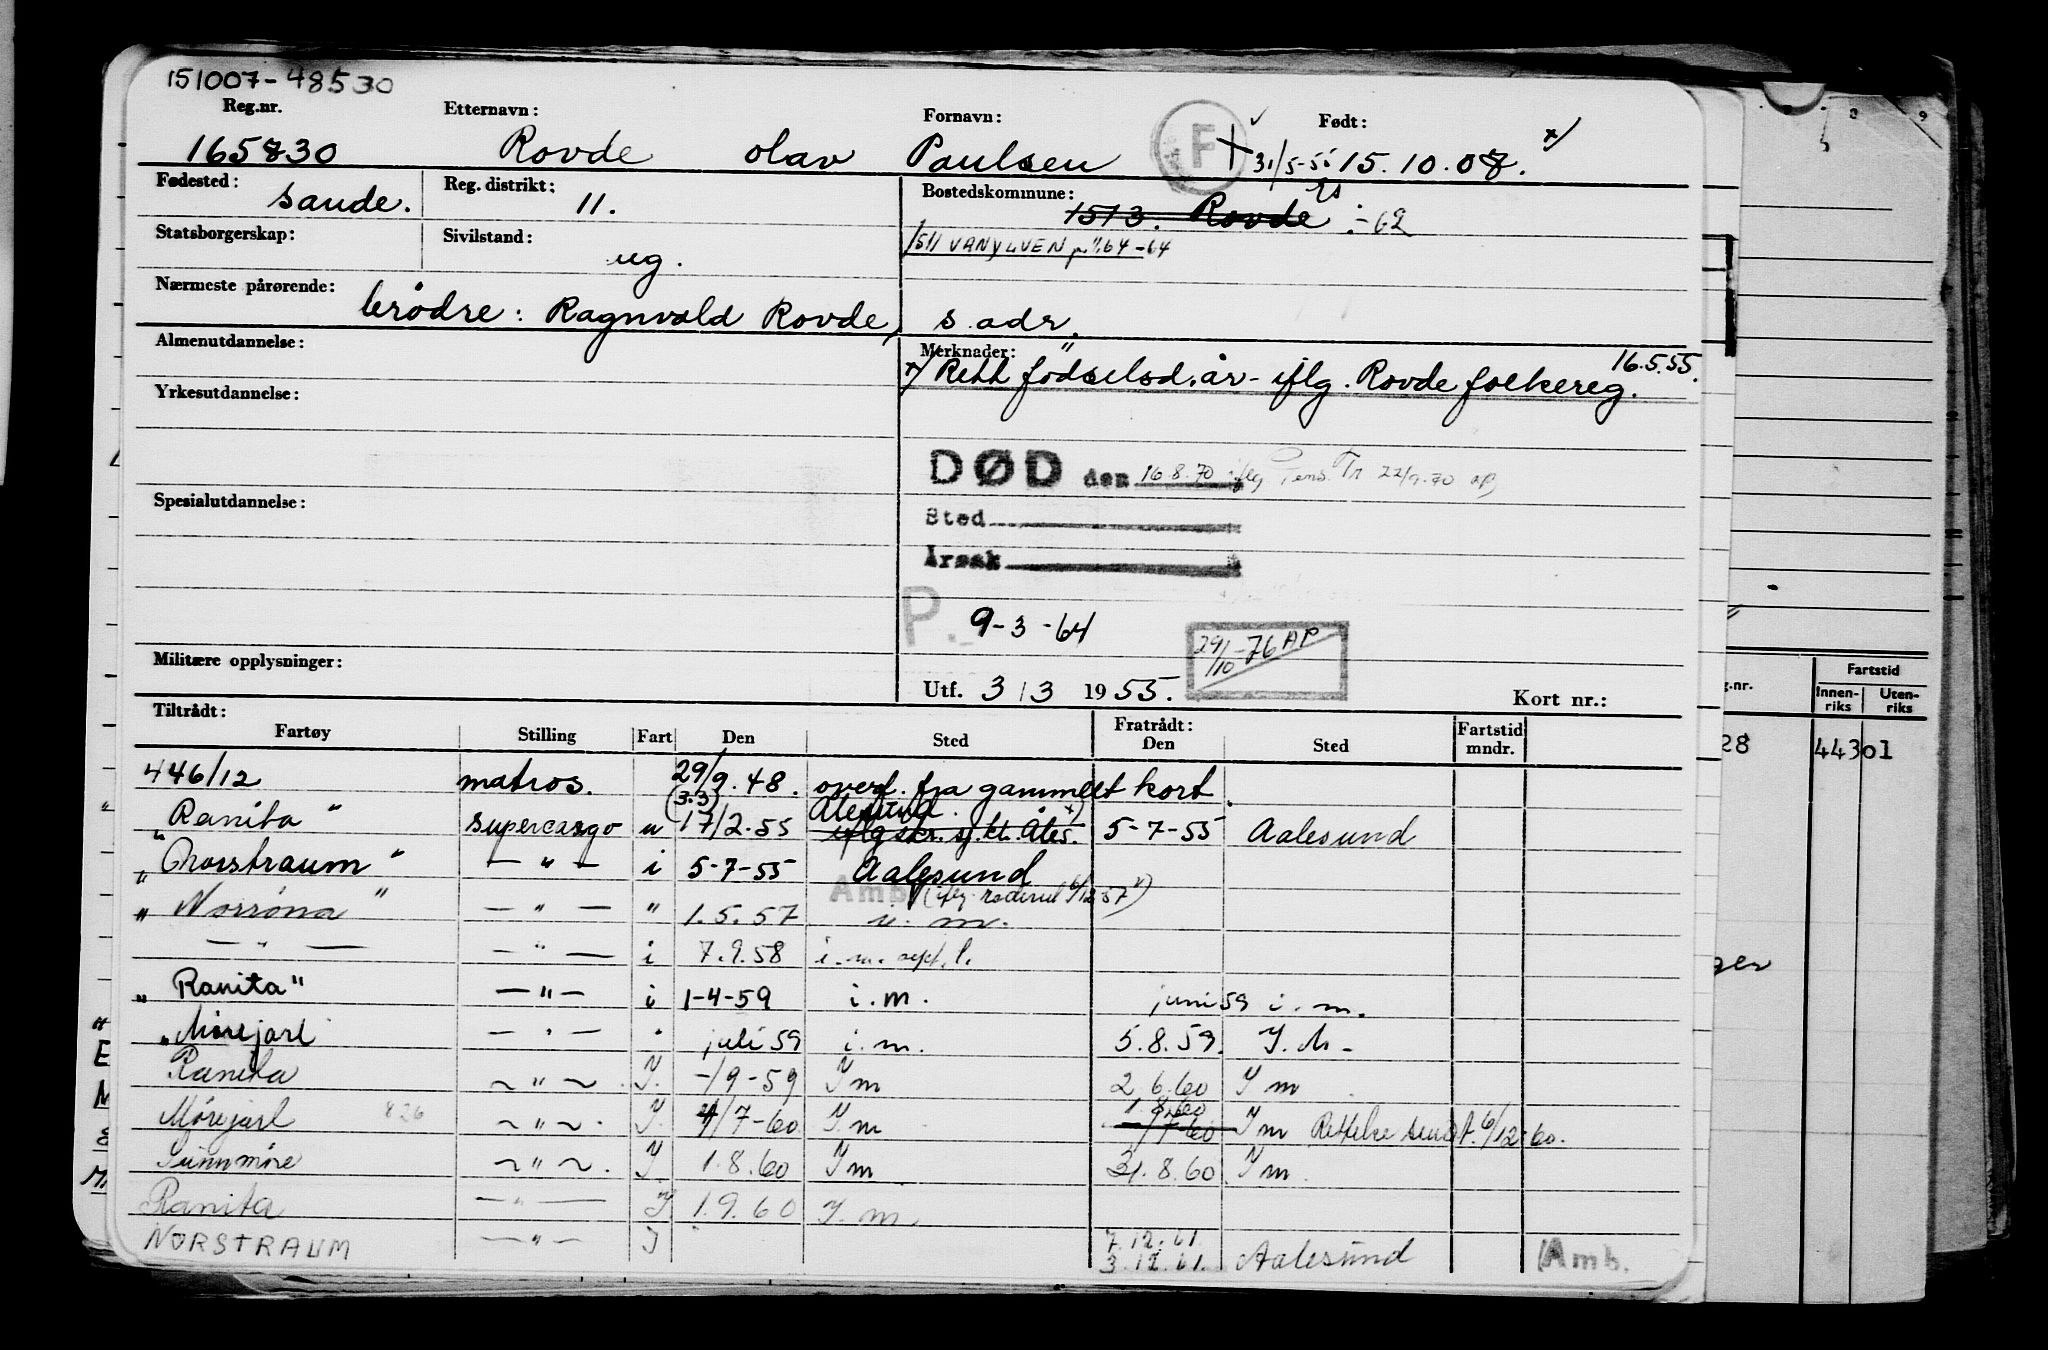 151007-48530
Reg.nr. Etternavn: Fornavn: F Født:
165830 Rovde olav Paulsen 31/5-55 15.10.07. x)
Fødested: Reg. distrikt: Bostedskommune:
Sande. 11. 1513. Rovde ÷-62
Statsborgerskap: Sivilstand: 1511 VANYLVEN pr. 1/1 64-64
ug.
Nærmeste pårørende:
brödre: Ragnvald Rovde, s. adr.
Almenutdannelse: Merknader: 16.5.55.
x) Rett födselsd. år - iflg. Rovde folkereg.
Yrkesutdannelse:
DØD den 16.8.70 iflg Pens. Tr 22/9-70 ap,
Spesialutdannelse:
Sted
Årsak
P. 9-3-64
29/10-76 AP
Militære opplysninger:
Utf. 3/3 1955. Kort nr.:
Tiltrådt: Fratrådt: Fartstid
Fartøy Stilling Fart Den Sted Den Sted mndr.
446/12 matros. 29/9.48. overf. fra gammelt kort.
(3.3) Alesund. x)
"Ranita" supercargo u 17/2.55 iflg skr. sj.kt. Åles. 5-7-55 Aalesund
"Norstraum" — " — i 5-7-55 Aalesund
Amb. (iflg. rederiet 6/12 57)
"Norröna" — " — " 1.5.57 i. m.
— " — — " — i 7.9.58 i. m. sept. l.
"Ranita" — " — i 1-4-59 i. m. juni 59 i. m.
"Mörejarl — " — " juli 59 i. m. 5.8.59. I. M.
Ranita ~ " ~ . I. -/9-59 I m 2.6.60 I m
1.8.60
Mörejarl 826 ~ " ~ . I. 4/7-60 I m -/7-60 I m Rettelse sendt. 6/12-60.
Sunnmöre ~ " ~ . I 1.8.60 I m 31.8.60 I m
Ranita — " — I 1.9.60 I. m
7.12.61.
NORSTRAUM — " — I 3.12.61. Aalesund Amb.
g.nr. Fartstid
Innen-riks Uten-riks
28 44301
ger